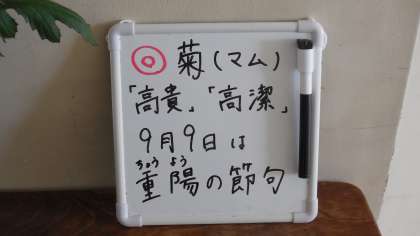 ◎ 菊(マム)
「高貴」「高潔」
9月9日は
ちょう よう
重陽の節句